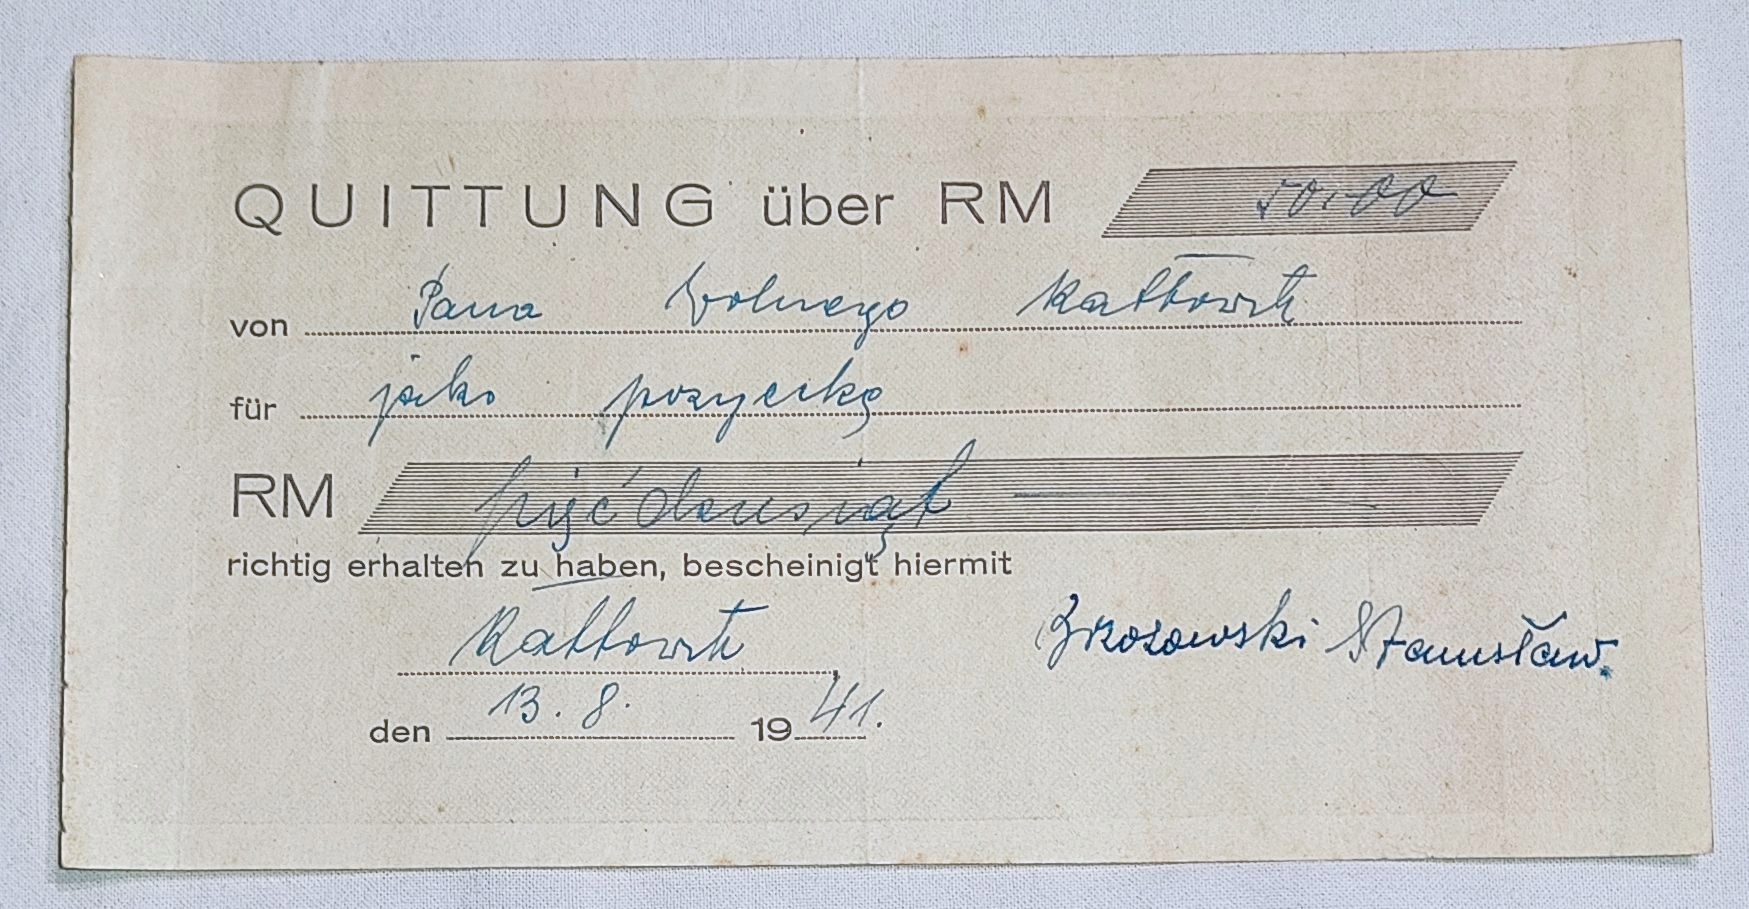 QUITTUNG über RM 50,00
von Pana Wolnego Kattowitz
für jako pozyczkę
RM pięćdziesiąt —
richtig erhalten zu haben, bescheinigt hiermit
Kattowitz
Brzozowski Stanisław.
den 13. 8. 1941.